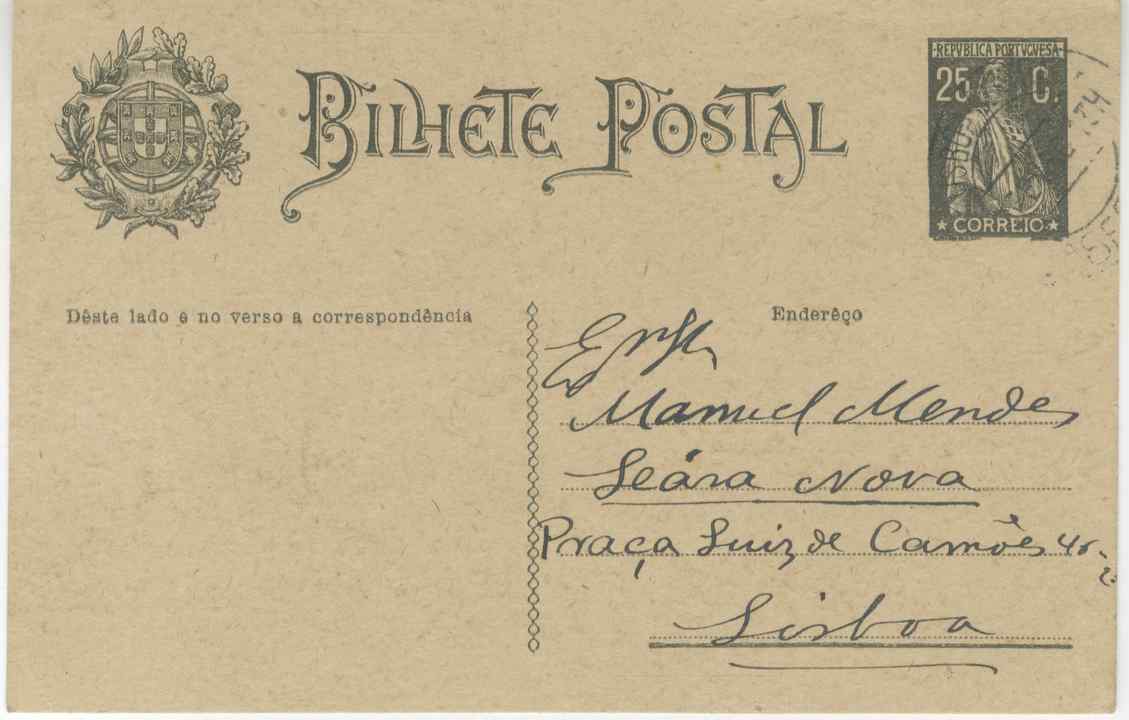 BILHETE POSTAL
REPVBLICA PORTVGVESA
25 C.
CORREIO
Dêste lado e no verso a correspondência
Enderêço
Manuel Mendes
Seára Nova
Praça Luiz de Camões
Lisboa